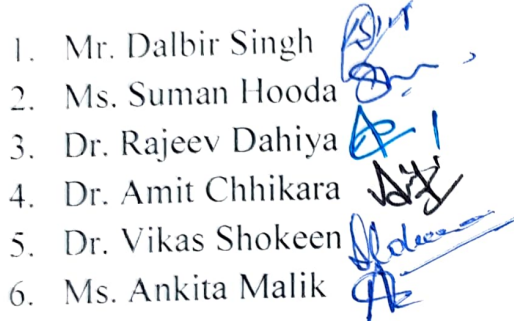 1. Mr. Dalbir Singh
2. Ms. Suman Hooda
3. Dr. Rajeev Dahiya
4. Dr. Amit Chhikara
5. Dr. Vikas Shokeen
6. Ms. Ankita Malik